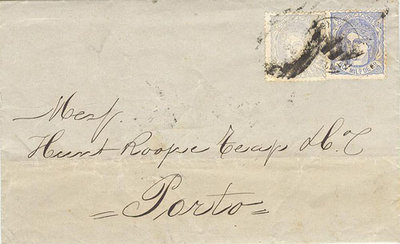 Mess.
Hunt Roope Teage & Co
= Porto =